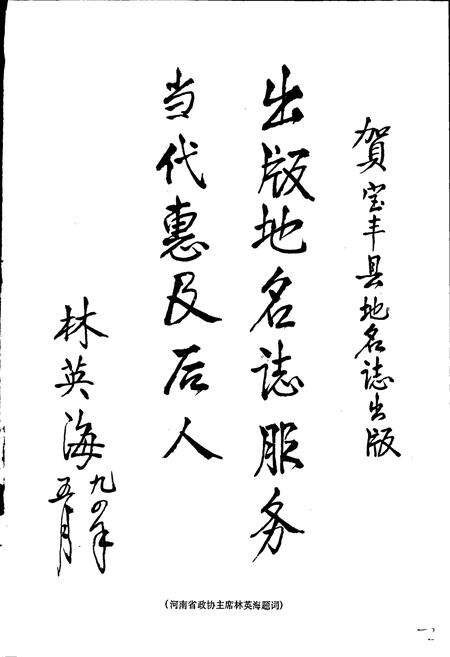 賀宝丰县地名誌出版
出版地名誌服务
当代惠及后人
林英海
九四年
五月
(河南省政协主席林英海题词)